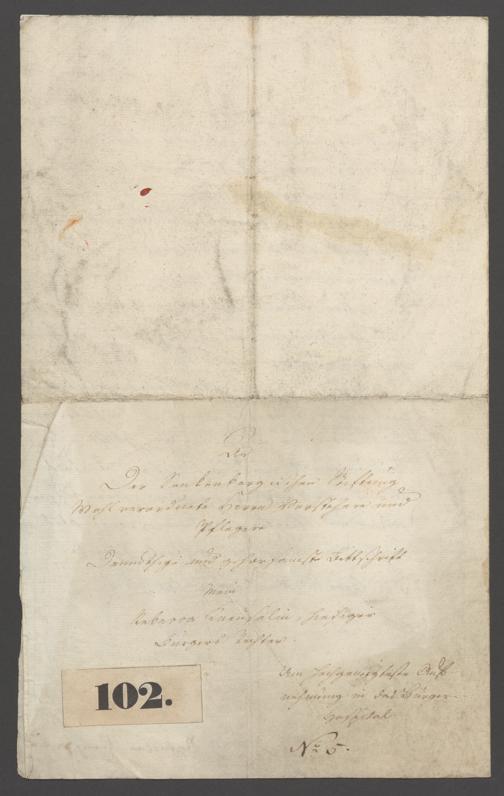 An
Der Senkenbergischen Stiftung
Wohlverordnete Herrn Vorstehere und
Pflegere
Demüthige und gehorsamste Bittschrift
Mein
Rebecca hiesiger
Bürgers Tochter
Um hochgeneigteste Auf-
nehmung in das Bürger-
Hospital
102.
No 5.